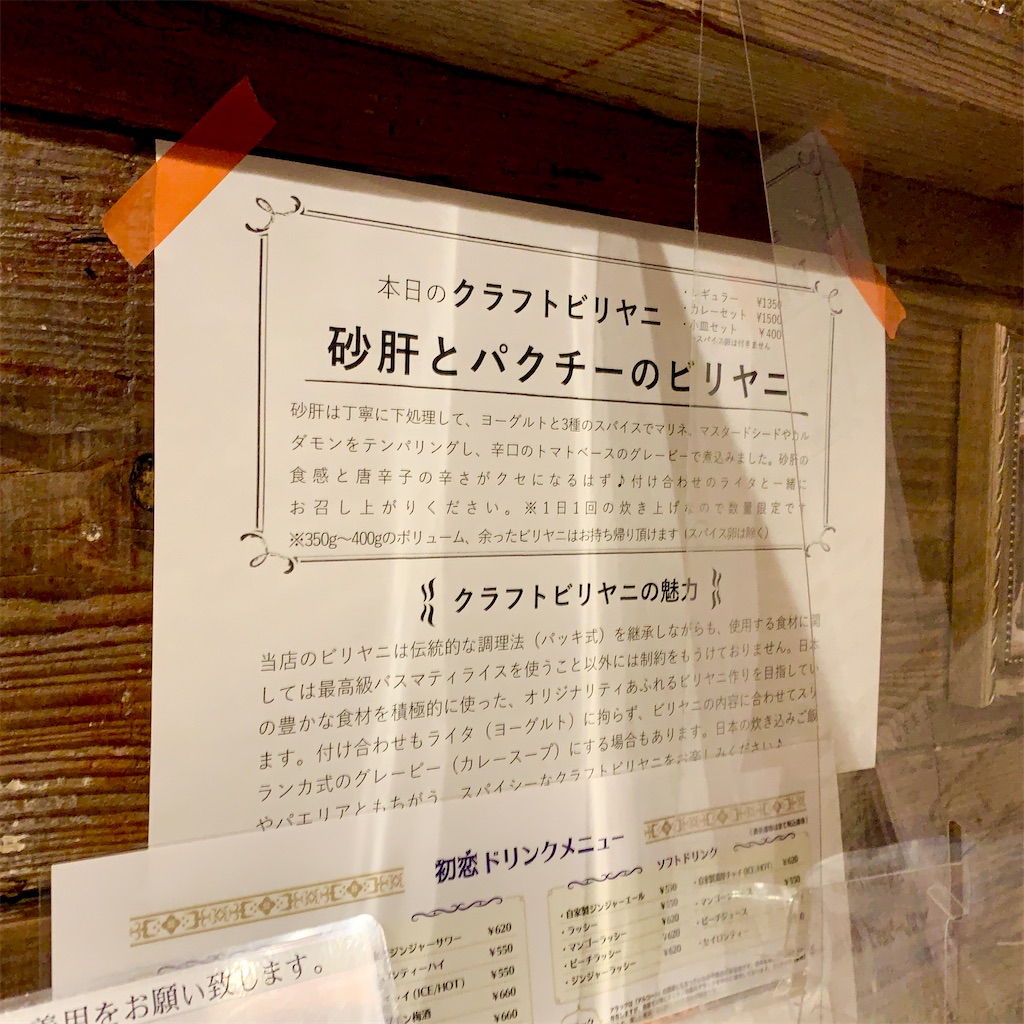 本日のクラフトビリヤニ
・レギュラー ¥1350
・カレーセット ¥1500
・小皿セット ¥400
スパイス卵は付きません
砂肝とパクチーのビリヤニ
砂肝は丁寧に下処理して、ヨーグルトと3種のスパイスでマリネ、マスタードシードやカル
ダモンをテンパリングし、辛口のトマトベースのグレービーで煮込みました。砂肝の
食感と唐辛子の辛さがクセになるはず♪付け合わせのライタと一緒に
お召し上がりください。※1日1回の炊き上げなので数量限定です
※350g〜400gのボリューム、余ったビリヤニはお持ち帰り頂けます(スパイス卵は除く)
クラフトビリヤニの魅力
当店のビリヤニは伝統的な調理法（パッキ式）を継承しながらも、使用する食材に関
しては最高級バスマティライスを使うこと以外には制約をもうけておりません。日本
の豊かな食材を積極的に使った、オリジナリティあふれるビリヤニ作りを目指してい
ます。付け合わせもライタ（ヨーグルト）に拘らず、ビリヤニの内容に合わせてスリ
ランカ式のグレービー（カレースープ）にする場合もあります。日本の炊き込みご飯
やパエリアともちがう、スパイシーなクラフトビリヤニをお楽しみください♪
初恋ドリンクメニュー
ジンジャーサワー ¥620
ンティーハイ ¥550
ャイ(ICE/HOT) ¥550
ン梅酒 ¥660
¥660
ソフトドリンク
・自家製ジンジャーエール ¥550
・ラッシー ¥550
・マンゴーラッシー ¥620
・ピーチラッシー ¥620
・ジンジャーラッシー ¥620
・自家製チャイ(ICE/HOT) ¥620
・マンゴージュース ¥550
・ピーチジュース
・セイロンティー
着用をお願い致します。